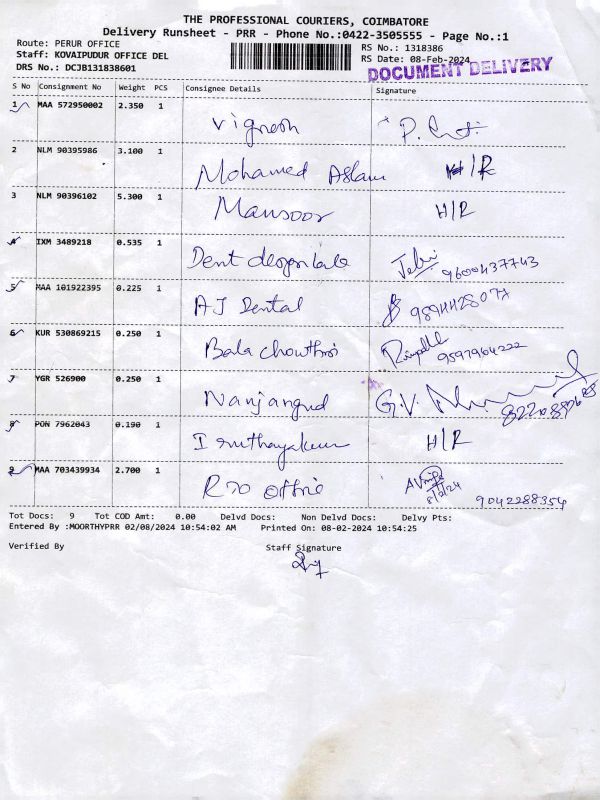 THE PROFESSIONAL COURIERS, COIMBATORE
Delivery Runsheet - PRR - Phone No.:0422-3505555 - Page No.:1
Route: PERUR OFFICE RS No.: 1318386
Staff: KOVAIPUDUR OFFICE DEL RS Date: 08-Feb-2024
DRS No.: DCJB131838601 DOCUMENT DELIVERY
S No Consignment No Weight PCS Consignee Details Signature
1 MAA 572950002 2.350 1 Vignesh
2 NLM 90395986 3.100 1 Mohamed Aslam H/R
3 NLM 90396102 5.300 1 Mansoor H/R
4 IXM 3489218 0.535 1 Dent 9600437743
5 MAA 101922395 0.225 1 AJ Dental
6 KUR 530869215 0.250 1 Bala 9597964222
7 YGR 526900 0.250 1 Nanjangud G.V.
8 PON 7962043 0.190 1 H/R
9 MAA 703439934 2.700 1 8/2/24 9042288354
Tot Docs: 9 Tot COD Amt: 0.00 Delvd Docs: Non Delvd Docs: Delvy Pts:
Entered By :MOORTHYPRR 02/08/2024 10:54:02 AM Printed On: 08-02-2024 10:54:25
Verified By Staff Signature